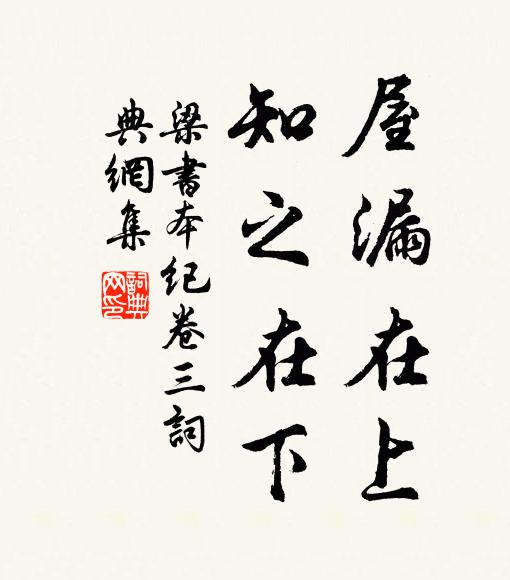 屋漏在上
知之在下
梁書本紀卷三詞
典網集
詞典
网印